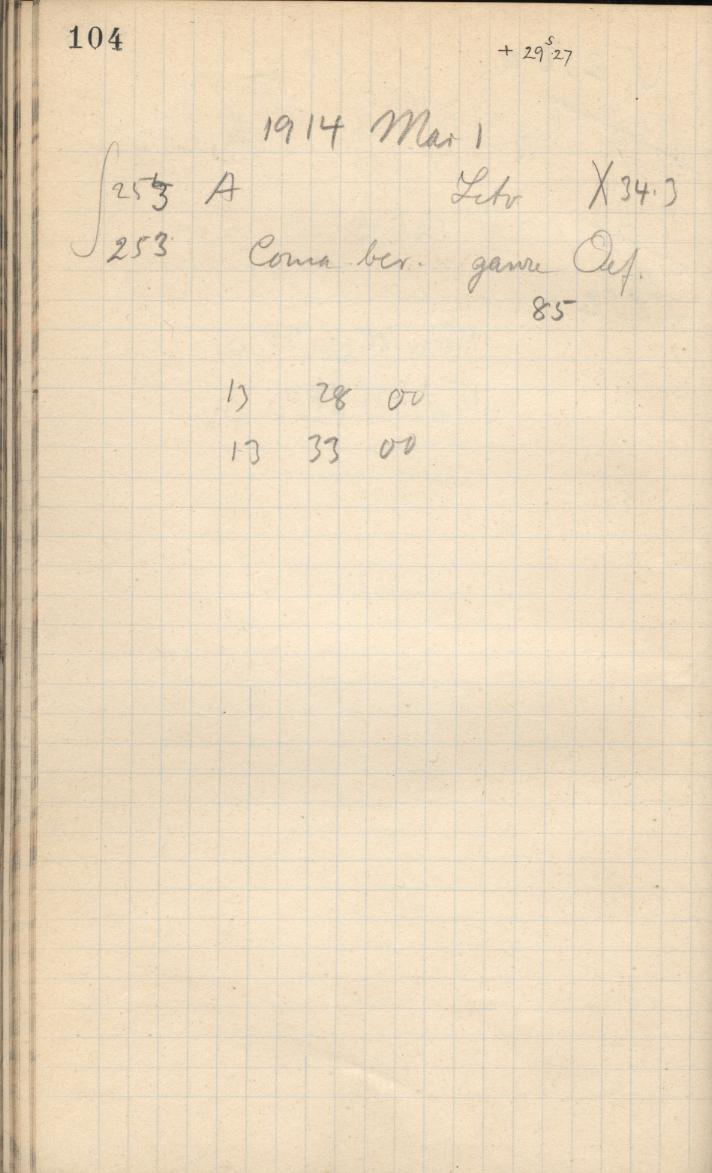 104
+ 29ˢ.27
1914 Mar 1
253 A X 34.3
253 Coma ber. ganze Oef.
85
13 28 00
13 33 00